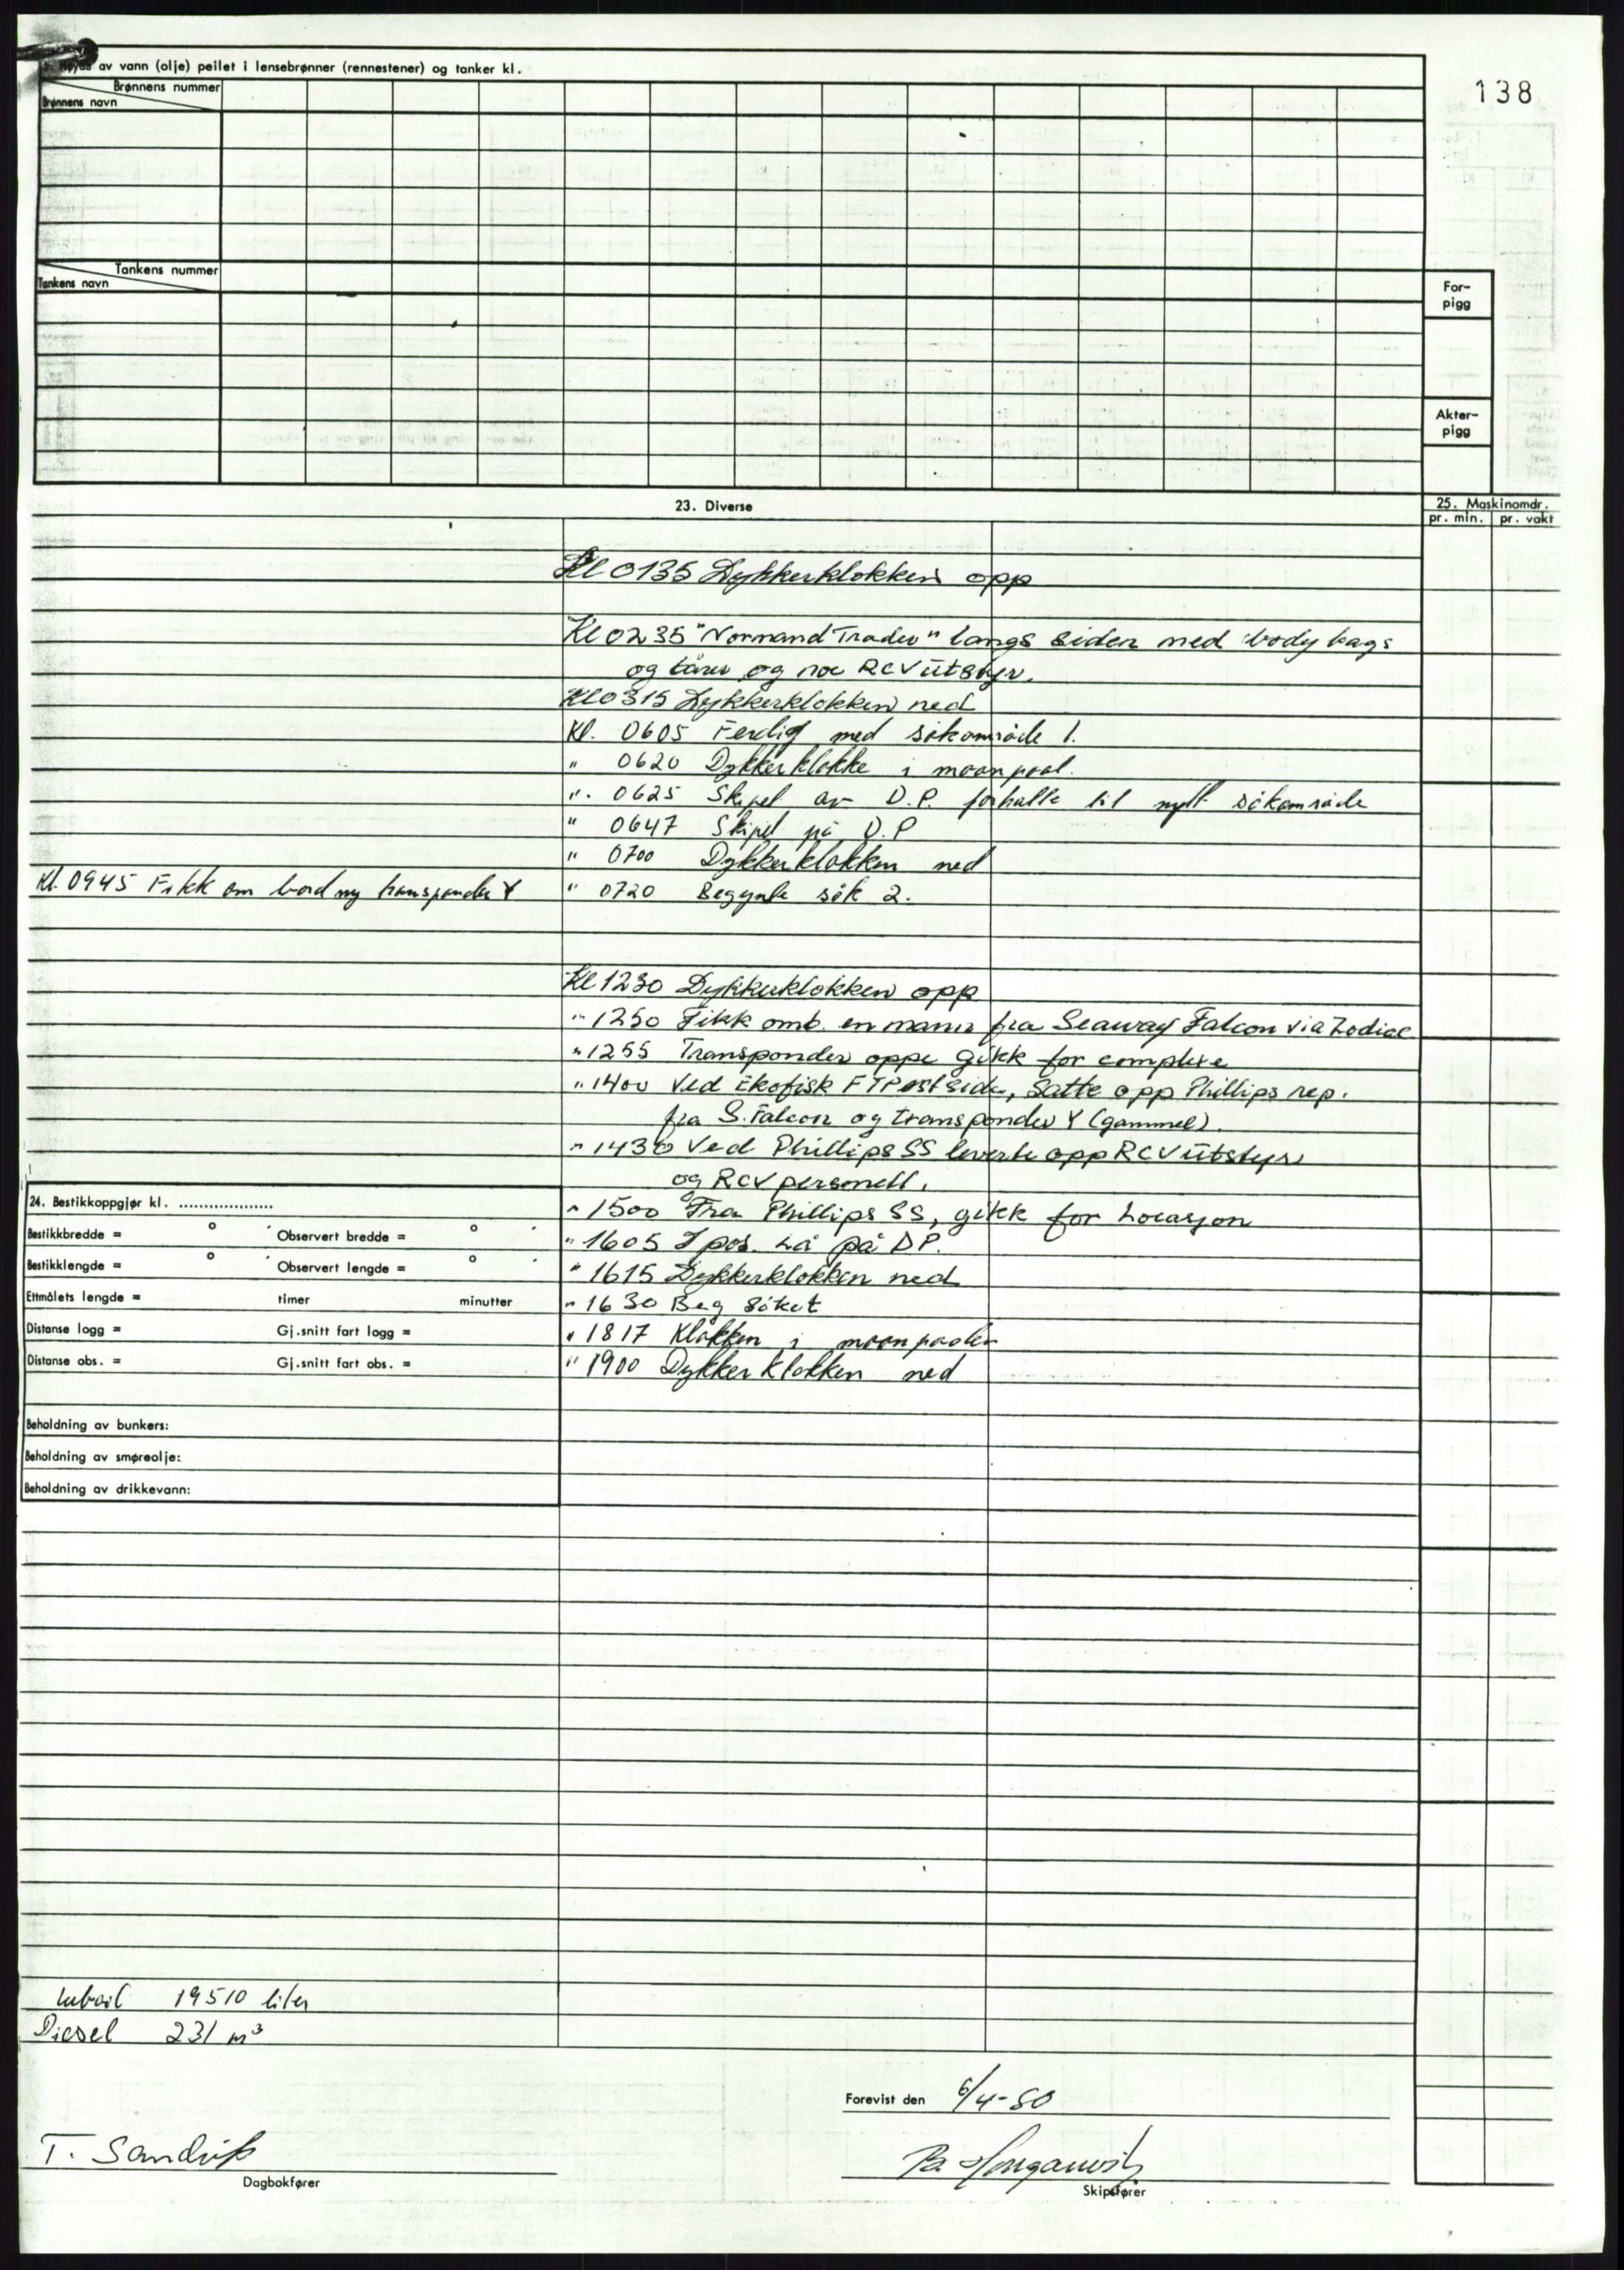 138
av vann (olje) peilet i lensebrønner (rennestener) og tanker kl.
Brønnens nummer
Brønnens navn
Tankens nummer
Tankens navn
For-
pigg
Akter-
pigg
23. Diverse
25. Maskinomdr.
pr. min. pr. vakt
Kl 0135 Dykkerklokken opp
Kl 0235 "Normand Trader" langs siden med body bags
og bårer og noe RCV utstyr.
Kl 0315 Dykkerklokken ned
Kl. 0605 Ferdig med søkområde 1.
" 0620 Dykkerklokke i moonpool.
". 0625 Skipet av D.P. forhalte til nytt søkområde
" 0647 Skipet på D.P
" 0700 Dykkerklokken ned
Kl. 0945 Fikk om bord ny transponder Y
" 0720 Begynte søk 2.
Kl 1230 Dykkerklokken opp
" 1250 Fikk omb. en mann fra Seaway Falcon via Zodiac
" 1255 Transponder oppe gikk for complexe
" 1400 Ved Ekofisk FTP østside, Satte opp Phillips rep.
fra S. Falcon og transponder Y (gammel).
" 1430 Ved Phillips SS leverte opp RCV utstyr
og RCV personell.
" 1500 Fra Phillips SS, gikk for Locasjon
" 1605 I pos. Lå på DP.
" 1615 Dykkerklokken ned
" 1630 Beg søket
" 1817 Klokken i moonpoolen
" 1900 Dykkerklokken ned
24. Bestikkoppgjør kl. ...................
Bestikkbredde = o ' Observert bredde = o '
Bestikklengde = o ' Observert lengde = o '
Ettmålets lengde = timer minutter
Distanse logg = Gj.snitt fart logg =
Distanse obs. = Gj.snitt fart obs. =
Beholdning av bunkers:
Beholdning av smøreolje:
Beholdning av drikkevann:
Luboil 19510 liter
Diesel 231 m³
Forevist den 6/4-80
T. Sandvik
Dagbokfører
Skipsfører